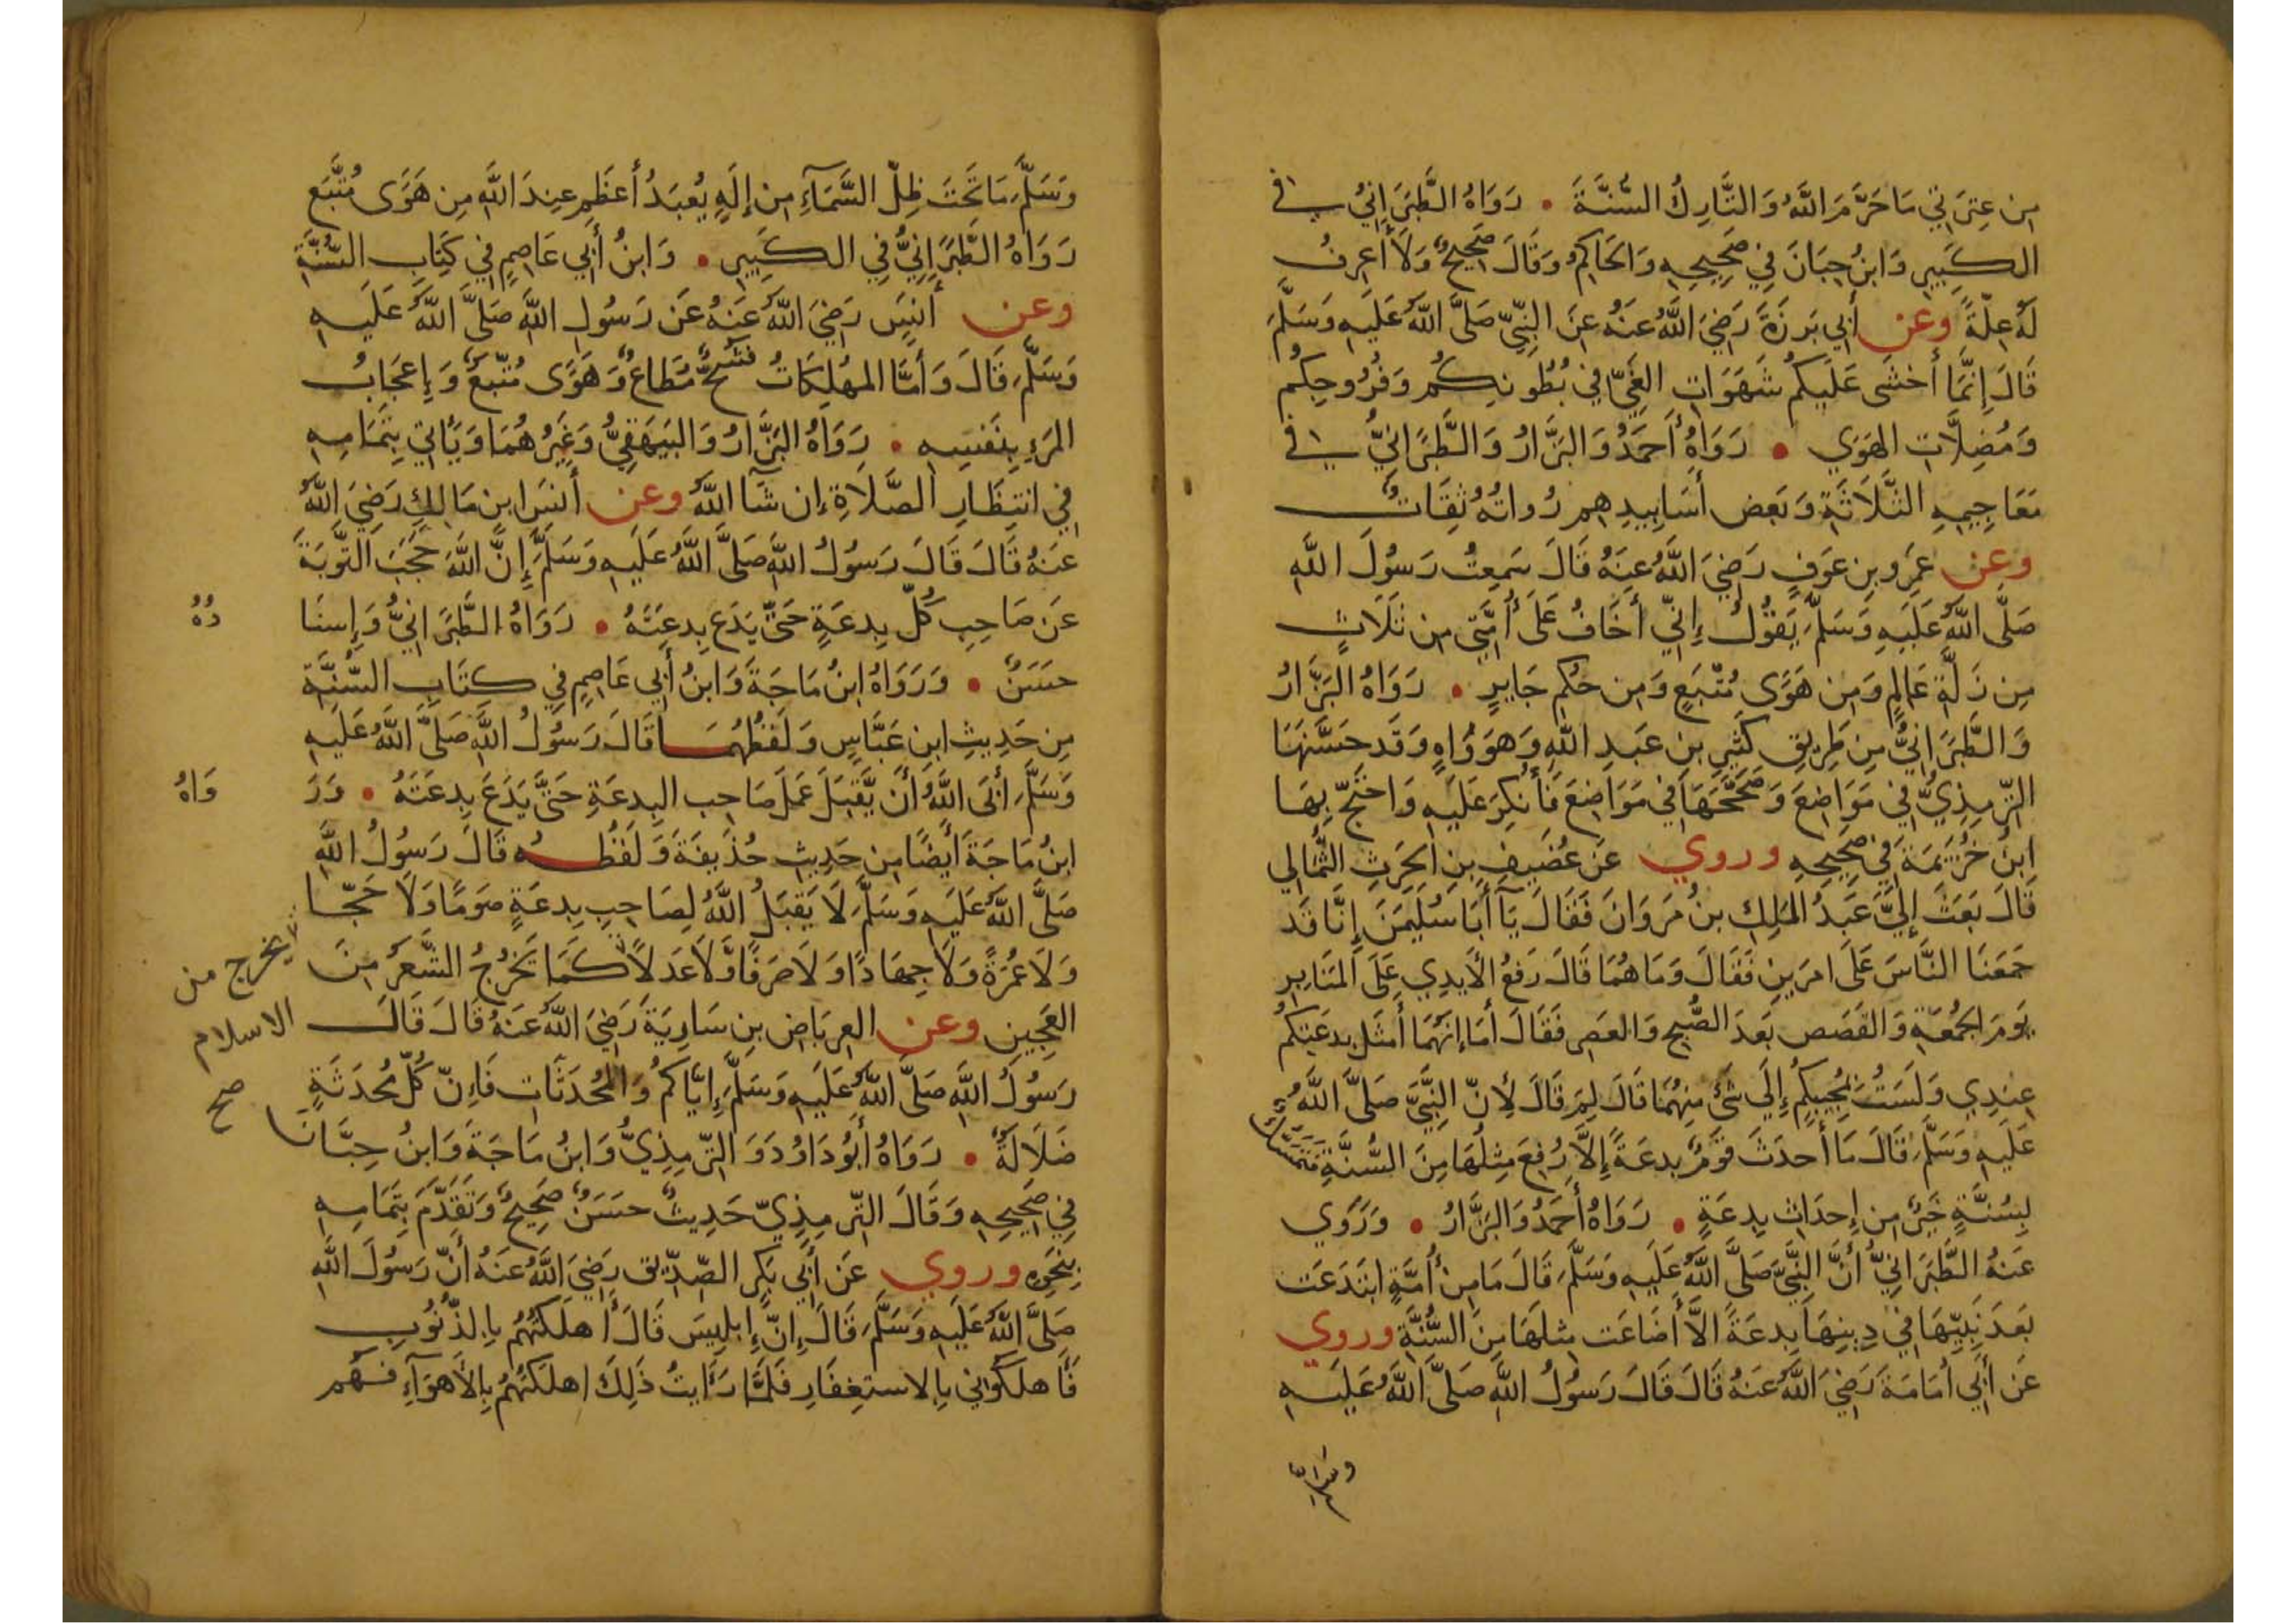 مِن عِترَتِي مَا حَرَّمَ اللَّهُ وَالتَّارِكُ السُّنَّةَ • رَوَاهُ الطَّبَرَانِيُ في
الكَبِيرِ وَابنُ حِبَانَ فِي صَحِيحِهِ وَالحَاكِمُ وَقَالَ صَحِيحٌ وَلَا أَعرِفُ
لَهُ عِلَّةً وعن أَبِي بَرزَةَ رَضِيَ اللَّهُ عَنهُ عَنِ النَّبِيِّ صَلَّى اللَّهُ عَلَيهِ وَسَلَّمَ
قَالَ إِنَّمَا أَخشَى عَلَيكُم شَهَوَاتِ الغَيِّ فِي بُطُونِكُم وَفُرُوجِكُم
وَمُضِلَّاتِ الهَوَي • رَوَاهُ أَحمَدُ وَالبَزَّارُ وَالطَّبَرَانِيُّ في
مَعَاجِيمِهِ الثَّلَاثَةِ وَبَعض أَسَانِيدِهِم رُوَاتُهُ ثِقَاتٌ
وعن عَمرِو بنِ عَوفٍ رَضِيَ اللَّهُ عَنهُ قَالَ سَمِعتُ رَسُولَ اللَّهِ
صَلَّى اللَّهُ عَلَيهِ وَسَلَّمَ يَقُولُ إِنِّي أَخَافُ عَلَى أُمَّتِي مِن ثَلَاثٍ
مِن زَلَّةِ عَالِمٍ وَمِن هَوًى مُتَّبَعٍ وَمِن حُكمٍ جَايِرٍ • رَوَاهُ البَزَّارُ
وَالطَّبَرَانِيُّ مِن طَرِيقِ كَثِيرِ بنِ عَبدِ اللَّهِ وَهوَ وَاهٍ وَقَد حَسَّنَهَا
التِّرمِذِيُّ فِي مَوَاضِعَ وَصَحَّحَهَا فِي مَوَاضِعَ فَأُنكِرَ عَلَيهِ وَاحتَجَّ بِهَا
ابنُ خُزَيمَةَ فِي صَحِيحِهِ وروي عَن غُضَيفِ بنِ الحَرِثِ الثُّمَالِي
قَالَ بَعَثَ إِلَيَّ عَبدُ المَلِكِ بنُ مَروَانَ فَقَالَ يَآ أَبَا سُلَيمَنَ إِنَّا قَد
جَمَعنَا النَّاسَ عَلَى امرَينِ فَقَالَ وَمَا هُمَا قَالَ رَفعُ الأَيدِي عَلَى المَنَابِرِ
يَومَ الجُمُعَةِ وَالقَصَصِ بَعدَ الصُّبحِ وَالعَصرِ فَقَالَ أَمَا إِنَّهُمَا أَمثَلُ بِدعَتِكُم
عِندِي وَلَستُ بِمُجِيبِكُم إِلَى شَيٍ مِنهُمَا قَالَ لِمَ قَالَ لِأَنَّ النَّبِيَّ صَلَّى اللَّهُ
عَلَيهِ وَسَلَّمَ قَالَ مَا أَحدَثَ قَومٌ بِدعَةً إِلَّا رُفِعَ مِثلُهَا مِنَ السُّنَّةِ فَتَمَسُّكٌ
بِسُنَّةٍ خَيرٌ مِن إِحدَاثِ بِدعَةٍ • رَوَاهُ أَحمَدُ وَالبَزَّارُ • وَرَوَي
عَنهُ الطَّبَرَانِيُّ أَنَّ النَّبِيَّ صَلَّى اللَّهُ عَلَيهِ وَسَلَّمَ قَالَ مَا مِن أُمَّةٍ ابتَدَعَت
بَعدَ نَبِيِّهَا فِي دِينِهَا بِدعَةً الَّا أَضَاعَت مِثلَهَا مِنَ السُّنَّةِ وروي
عَن أَبِي أُمَامَةَ رَضِيَ اللَّهُ عَنهُ قَالَ قَالَ رَسُولُ اللَّهِ صَلَّى اللَّهُ عَلَيهِ
وَسَلَّمَ مَا تَحتَ ظِلِّ السَّمَآءِ مِن إِلَهٍ يُعبَدُ أَعظَمِ عِندَ اللَّهِ مِن هَوًى مُتَّبَعٍ
رَوَاهُ الطَّبَرَانِيُّ فِي الكَبِيرِ • وَابنُ أَبِي عَاصِمٍ فِي كِتَابِ السُّنَّةِ
وعن أَنَسٍ رَضِيَ اللَّهُ عَنهُ عَن رَسُولِ اللَّهِ صَلَّى اللَّهُ عَلَيهِ
وَسَلَّمَ قَالَ وَأَمَّا المُهلِكَاتُ فَشُحٌّ مُطَاعٌ وَهَوًى مُتَّبَعٌ وَإِعجَابُ
المَرءِ بِنَفسِهِ • رَوَاهُ البَزَّارُ وَالبَيهَقِيُّ وَغَيرُهُمَا وَيَأتِي بِتَمَامِهِ
فِي انتِظَارِ الصَّلَاةِ إِن شَآ اللَّهُ وعن أَنَسِ ابنِ مَالِكٍ رَضِيَ اللَّهُ
عَنهُ قَالَ قَالَ رَسُولُ اللَّهِ صَلَّى اللَّهُ عَلَيهِ وَسَلَّمَ إِنَّ اللَّهَ حَجَبَ التَّوبَةَ
عَن صَاحِبِ كُلِّ بِدعَةٍ حَتَّى يَدَعَ بِدعَتَهُ • رَوَاهُ الطَّبَرَانِيُّ وَإِسنَا دُهُ
حَسَنٌ • وَرَوَاهُ ابنُ مَاجَةَ وَابنُ أَبِي عَاصِمٍ فِي كِتَابِ السُّنَّةِ
مِن حَدِيثِ ابنِ عَبَّاسٍ وَلَفظُهُمَا قَالَ رَسُولُ اللَّهِ صَلَّى اللَّهُ عَلَيهِ
وَسَلَّمَ أَبَى اللَّهُ أَن يَّقبَلَ عَمَلَ صَاحِبِ البِدعَةِ حَتَّى يَدَعَ بِدعَتَهُ • وَرَ وَاهُ
ابنُ مَاجَةَ أَيضًا مِن حَدِيثِ حُذَيفَةَ وَلَفظُهُ قَالَ رَسُولُ اللَّهِ
صَلَّى اللَّهُ عَلَيهِ وَسَلَّمَ لَا يَقبَلُ اللَّهُ لِصَاحِبِ بِدعَةٍ صَومًا وَلَا حَجًّا
وَلَا عُمرَةً وَلَا جِهَادًا وَلَا صَرفًا وَّلَا عَدلًا كَمَا تَخرُجُ الشَّعَرُ مِنَ
يخرج من
الاسلام
صح
العَجِينِ وعن العِربَاضِ بنِ سَارِيَةَ رَضِيَ اللَّهُ عَنهُ قَالَ قَالَ
رَسُولُ اللَّهِ صَلَّى اللَّهُ عَلَيهِ وَسَلَّمَ إِيَّاكُم وَالمُحدَثَاتِ فَإِنَّ كُلَّ مُحدَثَةٍ
ضَلَالَةٌ • رَوَاهُ أَبُو دَاوُدَ وَالتِّرمِذِيُّ وَابنُ مَاجَةَ وَابنُ حِبَّانَ
فِي صَحِيحِهِ وَقَالَ التِّرمِذِيّ حَدِيثٌ حَسَنٌ صَحِيحٌ وَتَقَدَّمَ بِتَمَامِهِ
بِنَحوِهِ وروي عَن أَبِي بَكرٍ الصِّدِّيقِ رَضِيَ اللَّهُ عَنهُ أَنَّ رَسُولَ اللَّهِ
صَلَّى اللَّهُ عَلَيهِ وَسَلَّمَ قَالَ إِنَّ إِبلِيسَ قَالَ أَهلَكتُهُم بِالذُّنُوبِ
فَأَهلَكُونِي بِالاستِغفَارِ فَلَمَّا رَأَيتُ ذَلِكَ اهلَكتُهُم بِالأَهوَآءِ فَهُم